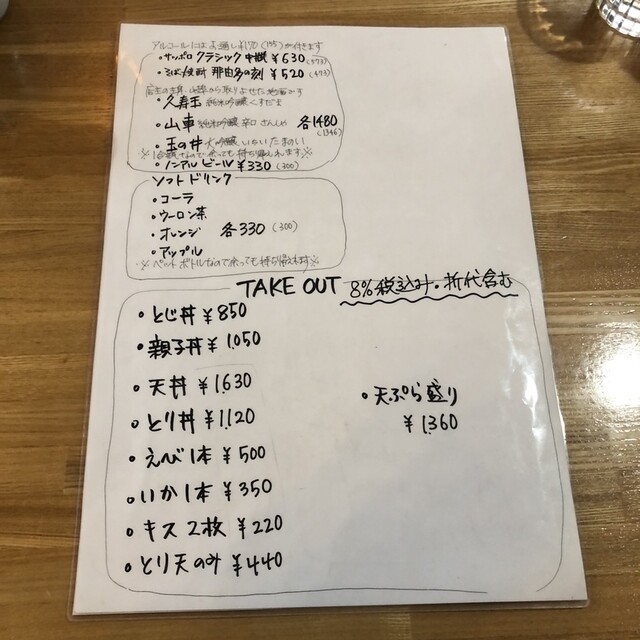 アルコールにはお通し¥170(155)が付きます
・サッポロ クラシック 中瓶 ¥630(573)
・そば焼酎 那由多の刻 ¥520(473)
・久寿玉 純米吟醸 くすだま
・山車 純米吟醸 辛口 さんしゃ 各1480(1346)
・玉の井 大吟醸
・ノンアルビール ¥330(300)
ソフトドリンク
・コーラ
・ウーロン茶
・オレンジ 各330(300)
・アップル
※ペットボトルなので余っても持ち帰れます※
TAKE OUT 8%税込み・折代含む
・とじ丼 ¥850
・親子丼 ¥1,050
・天丼 ¥1,630
・とり丼 ¥1,120
・えび1本 ¥500
・いか1本 ¥350
・キス2枚 ¥220
・とり天のみ ¥440
・天ぷら盛り
¥1,360